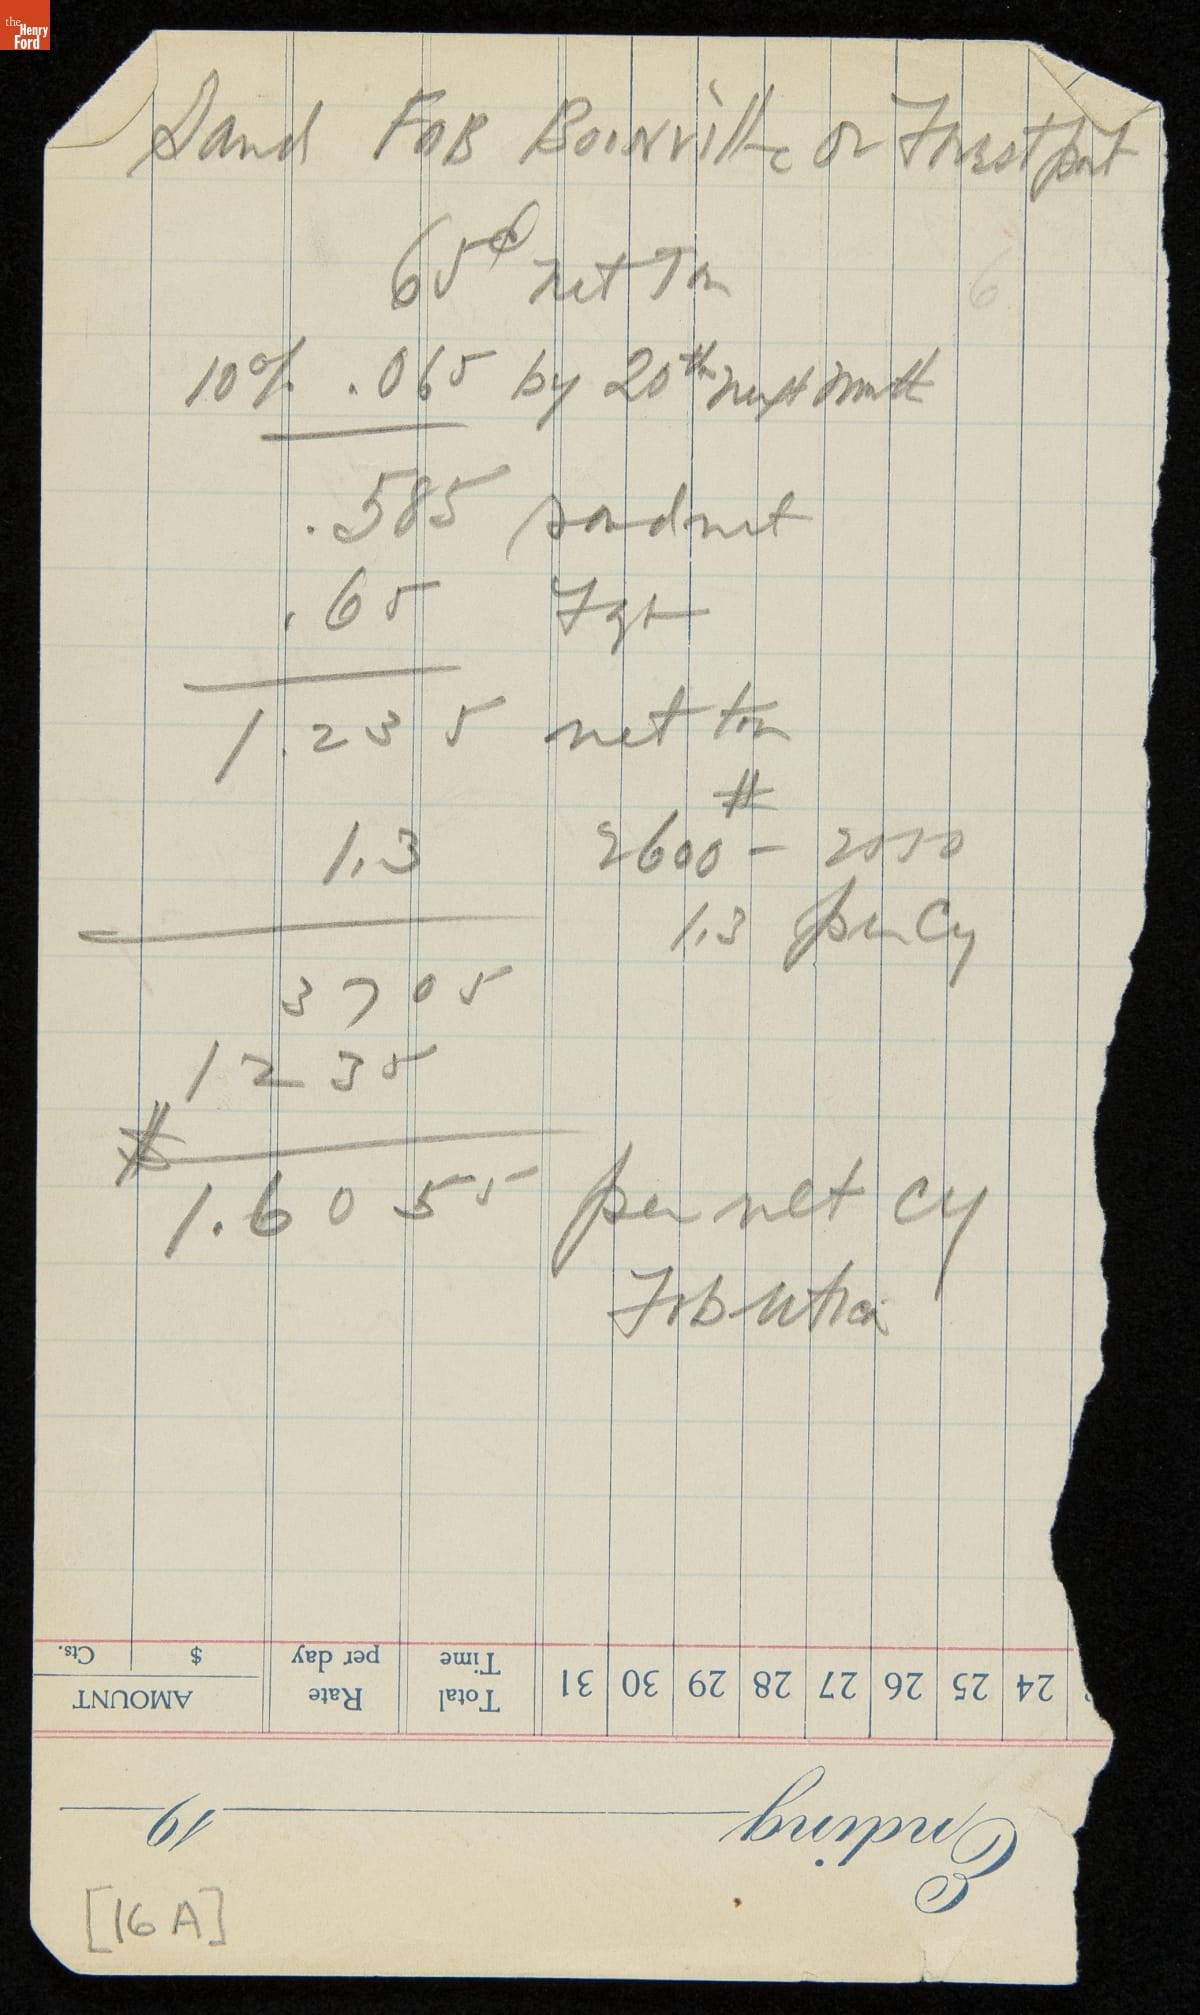 the
Henry
Ford
Sand FOB Boonville or Forestport
65¢ net Ton
10% .065 by 20th next month
.585 sand net
.65 Fgt
1.235 net ton
#
1.3 2600 - 2000
1.3 per Cy
3705
1235
$
1.6055 per net cy
Fob Utica
$ Cts.
AMOUNT
Rate
per day
Total
Time
31 30 29 28 27 26 25 24
Ending 19
[16A]